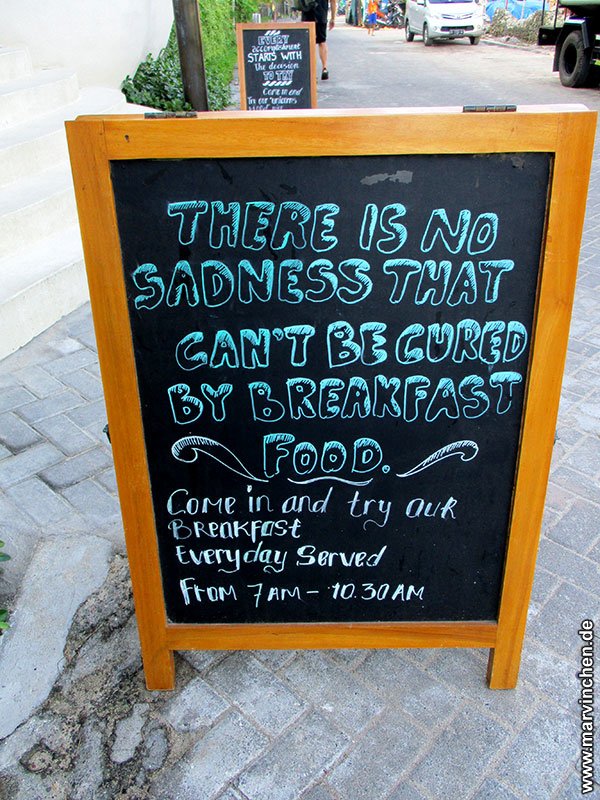 EVERY
accomplishment
STARTS WITH
the decision
TO TRY
Come in and
Try our
THERE IS NO
SADNESS THAT
CAN'T BE CURED
BY BREAKFAST
FOOD.
Come in and try our
BREAKFAST
Everyday Served
From 7AM - 10.30AM
www.marvinchen.de